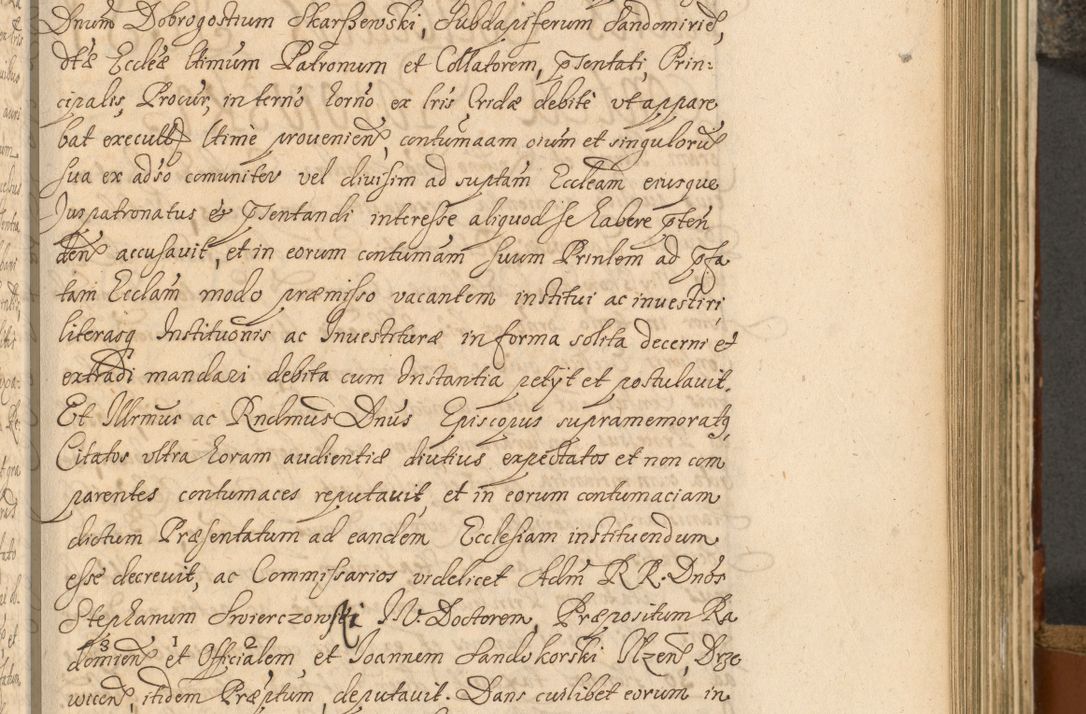 Dnum Dobrogostium Skarszewski, Subdapiferum Sandomirien,
dtæ Eccleæ ltimum Patronum et Collatorem, pSentati, Prin:
cipalis, Procur, in termo horno ex lris debitè vt appare
bat execut ltimè provenien, contumaam oium et singuloru
sua ex adso comuniter vel divisim ad suptam Eccleam eiusque
Juspatronatus et pSentandi interesse aliquod se habere pten
den accusavit, et in eorum contumam suum Prinlem ad pfa
tam Ecclam modo præmisso vacantem institui ac investiri
literasq Instituonis ac Investituræ in forma solita decerni et
extradi mandari debita cum Instantia petyt et postulavit.
Et Illrmus ac Rndmus Dnus Episcopus supramemoratq
Citatos vltra horam audientiæ diutius expectatos et non com
parentes contumaces reputavit et in eorum contumaciam
dictum Præsentatum ad eandem Ecclesiam instituendum
esse decrevit, ac Commissarios videlicet Adm RR. Dnos
Stephanum Swierczowski JV. Doctorem, Præpositum Ra
domien 3 et 1 Officialem 2 et Joannem Sandokorski Ilzen, Drze
wicen, itidem Præptum, deputavit. Dans cuilibet eorum in